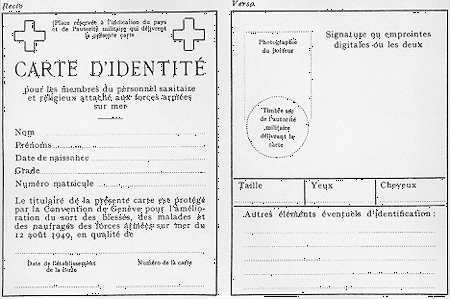 Recto
(Place réservée à l'indication du pays
et de l'autorité militaire qui délivrent
la présente carte)
CARTE D'IDENTITÉ
pour les membres du personnel sanitaire
et religieux attaché aux forces armées
sur mer
Nom
Prénoms
Date de naissance
Grade
Numéro matricule
Le titulaire de la présente carte est protégé
par la Convention de Genève pour l'amélio-
ration du sort des blessés, des malades et
des naufragés des forces armées sur mer du
12 août 1949, en qualité de
Date de l'établissement
de la carte
Numéro de la carte
Verso
Photographie
du porteur
Signature ou empreintes
digitales ou les deux
Timbre sec
de l'autorité
militaire
délivrant la
carte
Taille
Yeux
Cheveux
Autres éléments éventuels d'identification :